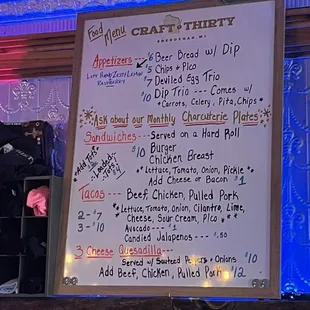 Food Menu
CRAFT THIRTY
Appetizers
$6 Beer Bread w/ Dip
$5 Chips & Pico
$7 Deviled Egg Trio
$10 Dip Trio --- Comes w/
*Carrots, Celery, Pita, Chips*
Ask about our Monthly Charcuterie Plates
Sandwiches --- Served on a Hard Roll
$10 Burger
Chicken Breast
*Lettuce, Tomato, Onion, Pickle*
Add Cheese or Bacon $1
*Add Tots*
Loaded
Tacos --- Beef, Chicken, Pulled Pork
2 - $7
3 - $10
*Lettuce, Tomato, Onion, Cilantro, Lime,
Cheese, Sour Cream, Pico*
Avocado --- $1
Candied Jalapenos --- $.50
3 Cheese Quesadilla ---
Served w/ Sauteed Peppers & Onions $10
Add Beef, Chicken, Pulled Pork $12